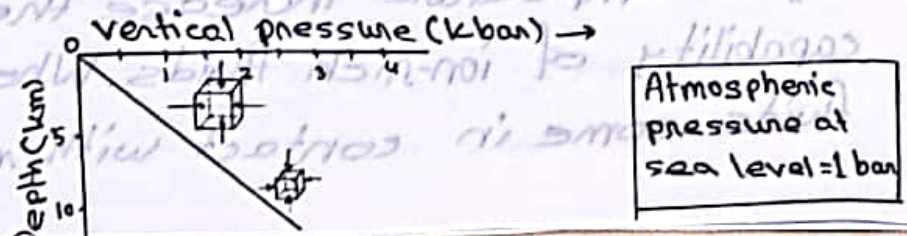 0 vertical pressure (kbar) →
1 2 3 4
Depth (km)
5
10
Atmospheric
pressure at
sea level = 1 bar